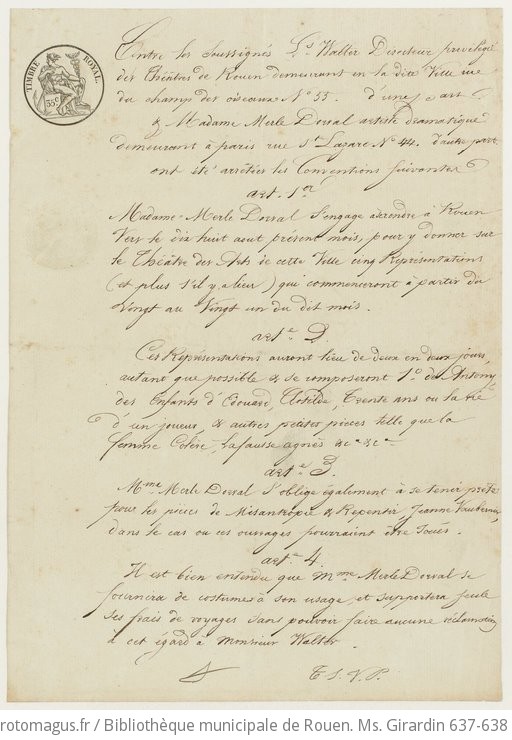 TIMBRE ROYAL.
35c
Entre les Soussignés Ls. Walter Directeur privilégié
des Théâtres de Rouen demeurant en la dite Ville rue
du champs des oiseaux No. 55. d'une part
& Madame Merle Dorval artiste dramatique
demeurant à paris rue St. Lazare No. 44. d'autre part
ont été arrêtées les Conventions Suivantes
art. 1er
Madame Merle Dorval S'engage à se rendre à Rouen
Vers le dix huit aout présent mois, pour y donner sur
le Théâtre des Arts de cette Ville cinq Représentations
(et plus s'il y a lieu) qui commenceront à partir du
Vingt au Vingt un du dit mois.
arte. 2
Ces Représentations auront lieu de deux en deux jours,
autant que possible & se composeront 1o. du Antony
des Enfants d'Edouard, Clotilde, Trente ans ou la vie
d'un joueur, & autres petites pièces telle que la
femme Colère, la fausse agnès &c &c
arte. 3.
Mme Merle Dorval S'oblige également à se tenir prête
pour les pièces de Misantropie & Repentir Jeanne Vaubernier
dans le cas ou ces ouvrages pourraient être Joués.
arte. 4.
Il est bien entendu que Mme Merle Dorval se
fournira de costumes à son usage et supportera seule
ses frais de voyages sans pouvoir faire aucune réclamation
à cet égard à Monsieur Walter.
T. S. V. P.
rotomagus.fr / Bibliothèque municipale de Rouen. Ms. Girardin 637-638